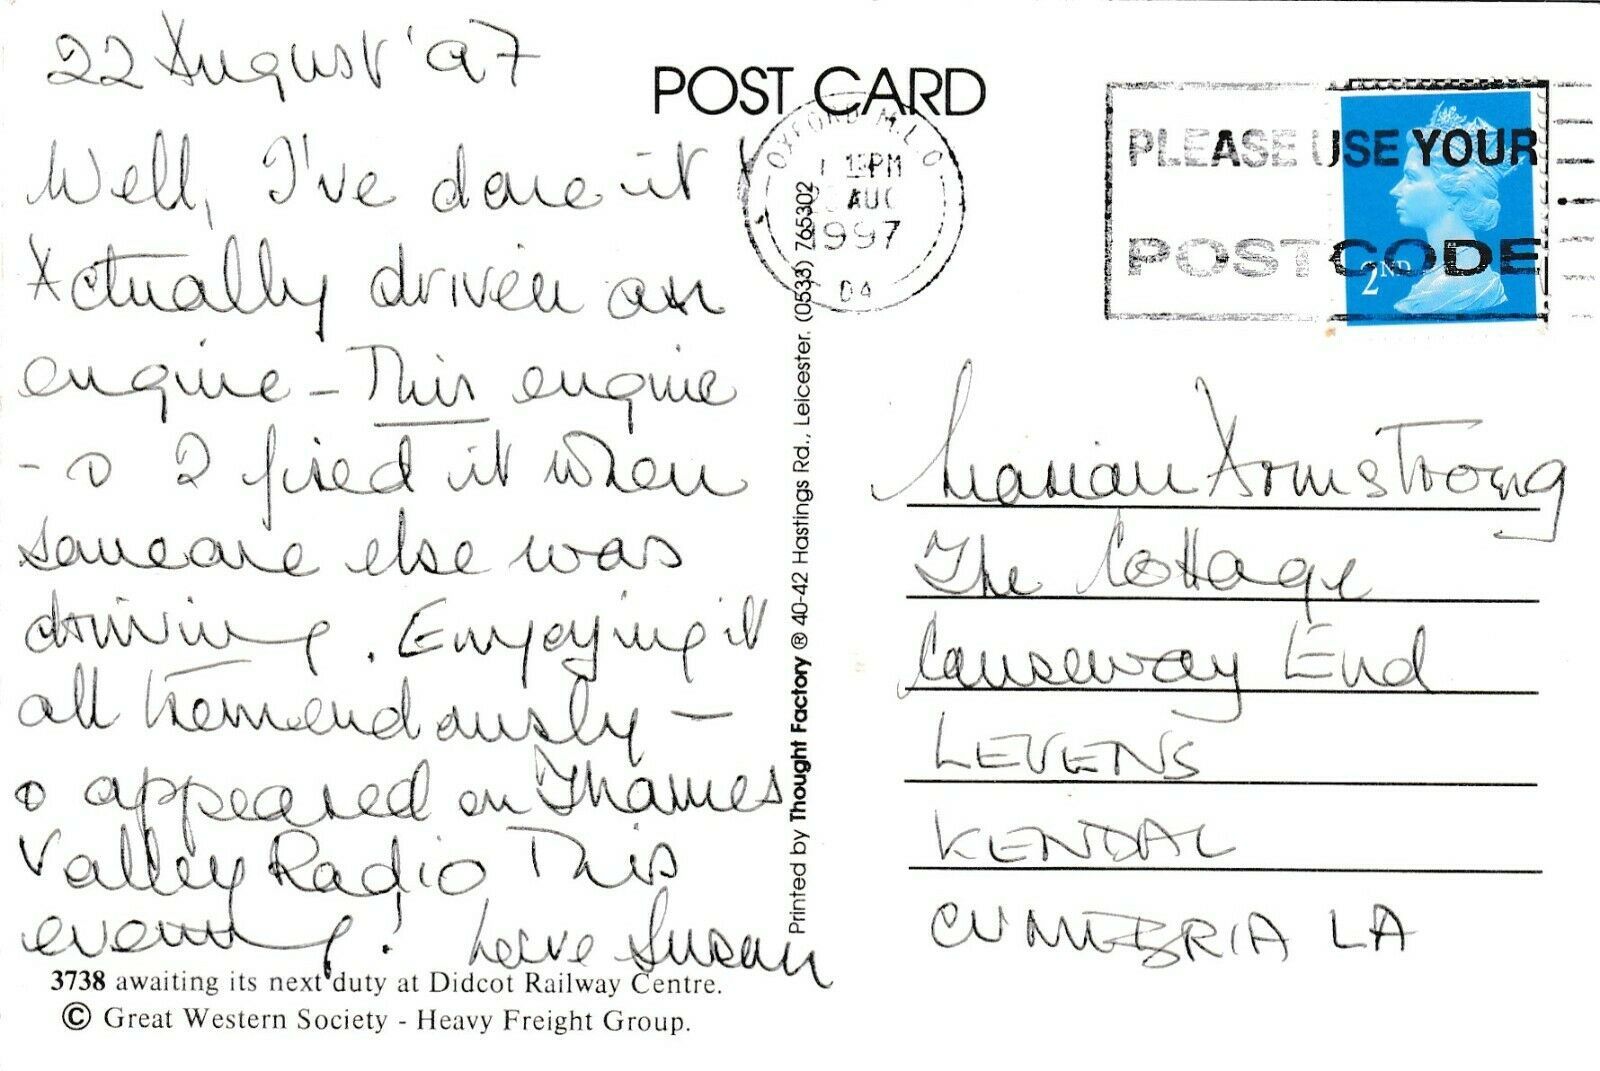 22 August '97
Well, I've done it!
Actually driven an
engine - This engine
- & I fired it when
someone else was
driving. Enjoying it
all tremendously -
& appeared on Thames
Valley Radio this
evening! Love Susan
3738 awaiting its next duty at Didcot Railway Centre.
© Great Western Society - Heavy Freight Group.
POST CARD
Printed by Thought Factory ® 40-42 Hastings Rd., Leicester. (0533) 765302
OXFORD M.L.O
PM
AUG
1997
DA
PLEASE USE YOUR
POSTCODE
2ND
Marian Armstrong
The Cottage
Causeway End
LEVENS
KENDAL
CUMBRIA LA